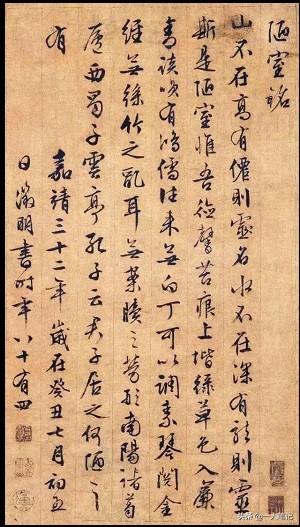 陋室銘
山不在高有僊則靈名水不在深有龍則靈
斯是陋室惟吾德馨苔痕上堦綠草色入簾
青談咲有鴻儒往來無白丁可以調素琴閱金
經無絲竹之亂耳無案牘之勞形南陽諸葛
廬西蜀子雲亭孔子云君子居之何陋之
有 嘉靖三十二年歲在癸丑七月初五
日徵明書時年八十有四
头条